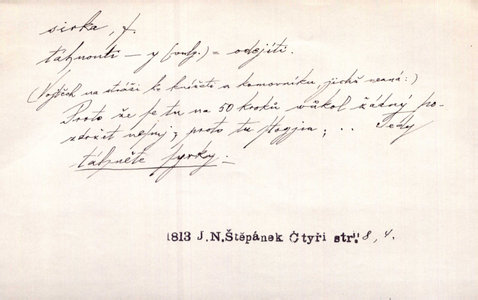 sirka, f.
táhnouti – y (vulg.) = odejíti.
(Vojtěch na stráži ke knížeti a komorníku, jichž nezná:)
Proto že se tu na 50 kroků wůkol žádný po-
zdržet nesmj; proto tu stogjm; .. Tedy
táhněte syrky.
1813 J.N.Štěpánek Čtyři str. 8, 4.